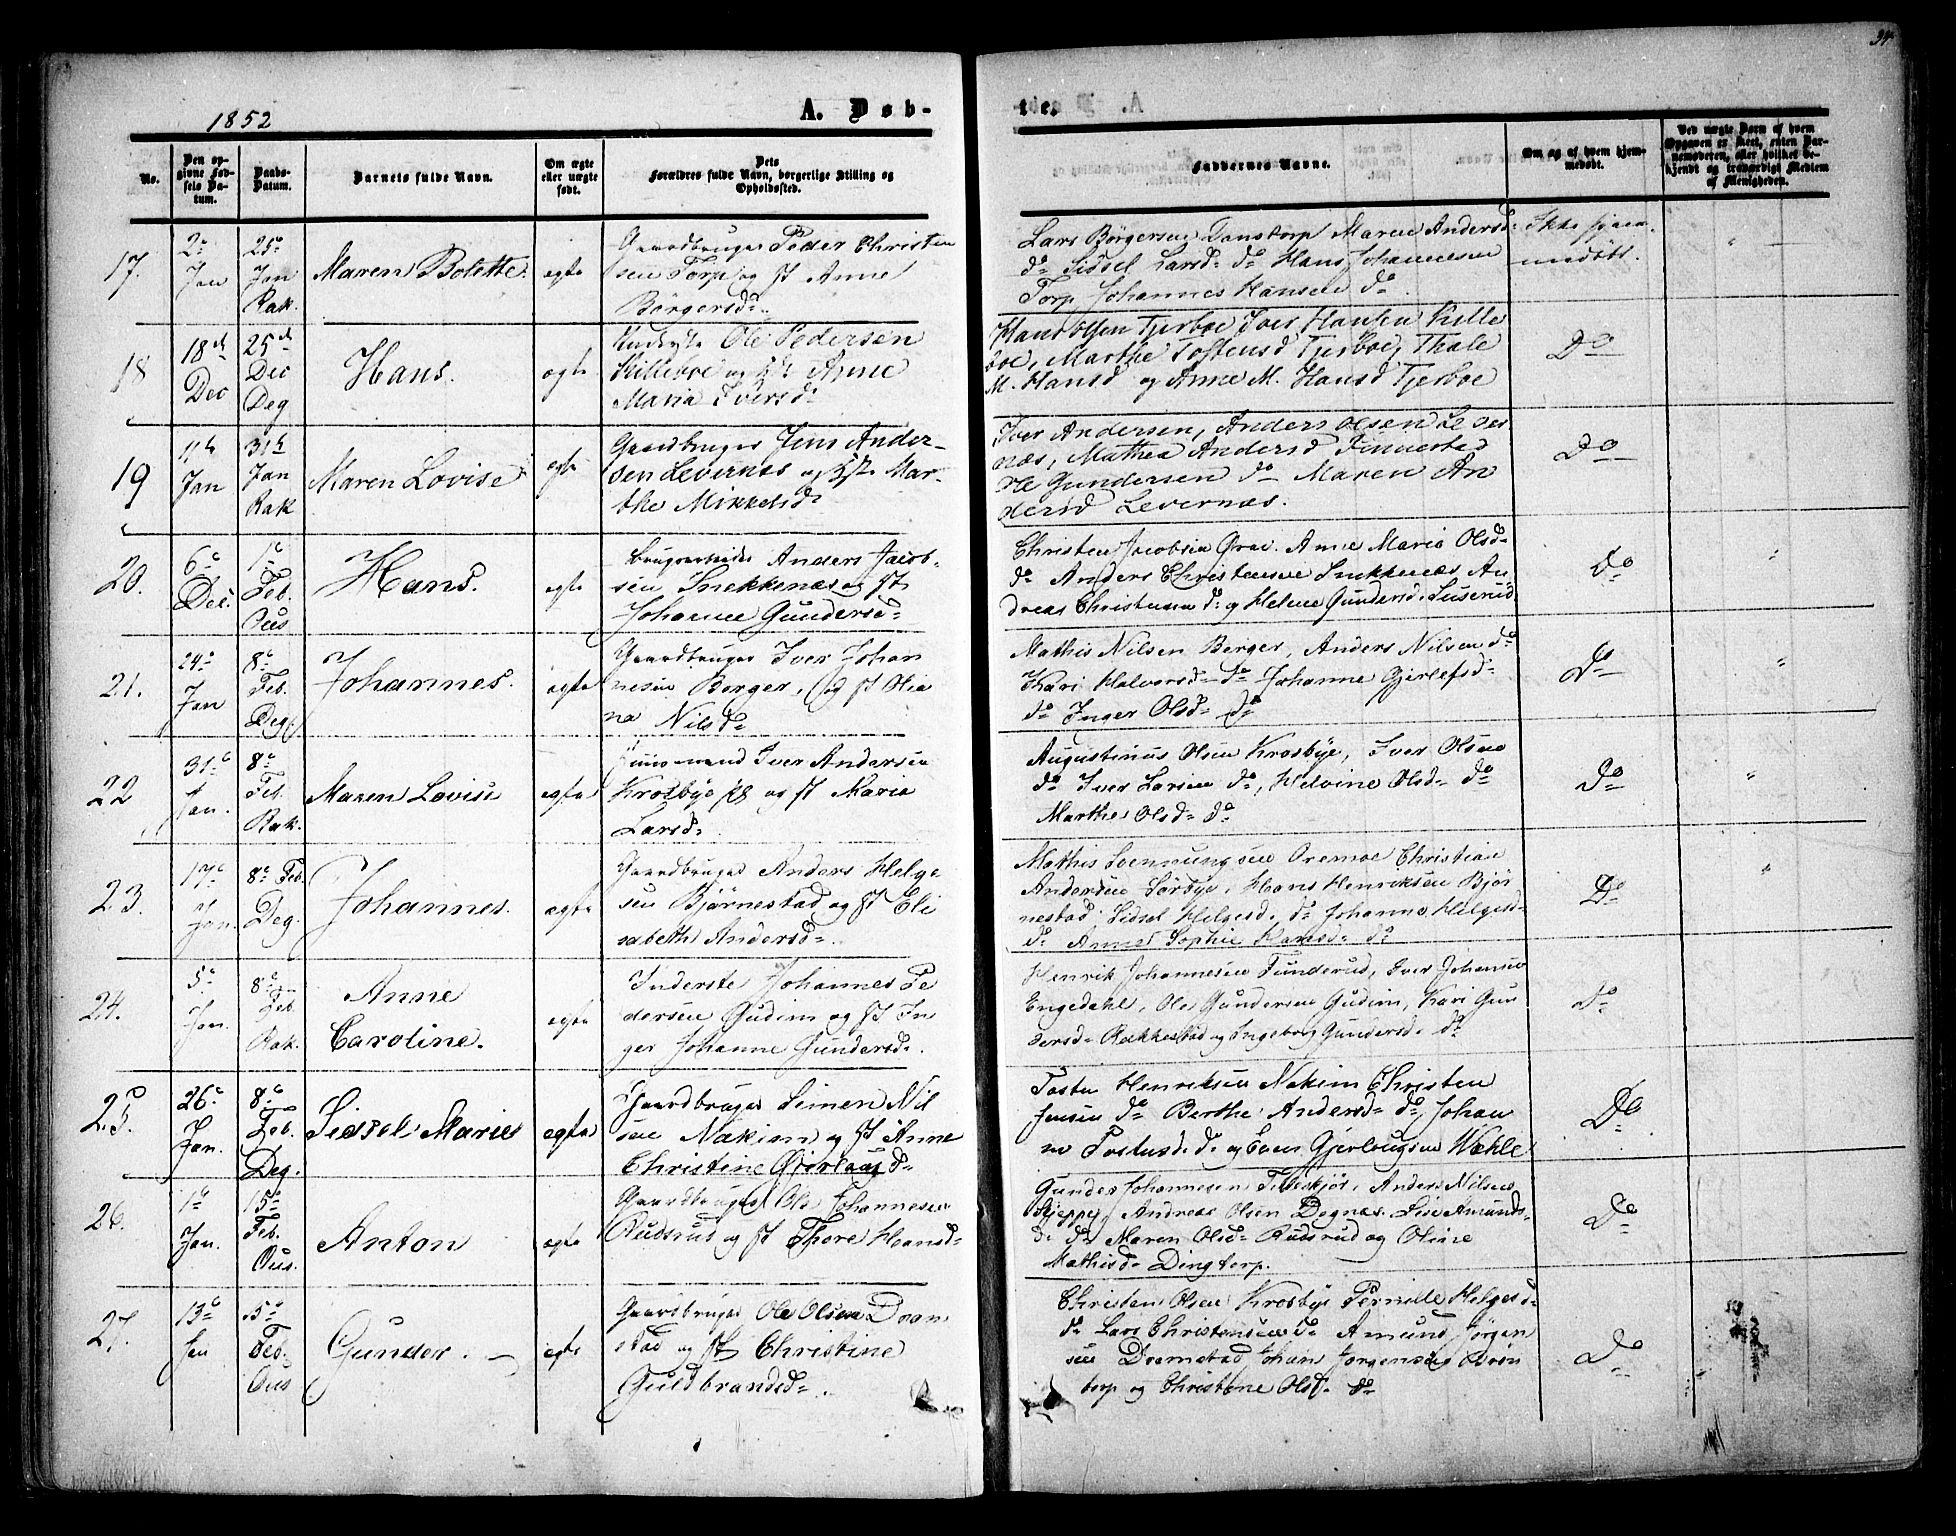 34
1852
A. Døb-
te.
No.
Den op-
givne Fød-
sels Da-
tum.
Daabs-
Datum.
Barnets fulde Navn.
Om ægte
eller uægte
født.
Dets
Forældres fulde Navn, borgerlige Stilling og
Opholdssted.
Faddernes Navne.
Om og af hvem hjem-
medøbt.
Ved uægte Børn af hvem
Opgaven er skeet, enten Bar-
nemoderen, eller hvilket be-
kjendt og troværdigt Medlem
af Menigheden.
17.
2de
Jan
25de
Jan
Rak.
Maren Bolette.
egte
Gaardbruger Peder Christen
sen Torp og H Anne
Börgersd.
Lars Börgersen Danstorp Maren Andersd.
do Sidsel Larsd. do Hans Johannesen
Torp Johannes Hansen do
Ikke hjem-
medöbt.
18
18d
Dec
25d
Dec
Deg
Hans.
egte
Ole Pedersen
Killeboe og Anne
Maria Iversd.
Hans Olsen Tjerboe Iver Hansen Kille
boe, Marthe Tostensd Tjerboe, Thale
M. Hansd og Anne M. Hansd Tjerboe
Do
19
11te
Jan
31te
Jan
Rak
Maren Lovise
egte
Gaardbruger Jens Ander-
sen Levernæs og Mar-
the Mikkelsd.
Iver Andersen, Anders Olsen Lever
næs, Mathea Andersd Finnestad
Ole Gundersen do Maren An
dersd Levernæs.
Do
20.
6te
Dec.
1te
Feb.
Ous
Hans.
egte
Brugsarbeider Anders Jacob-
sen Snekkenæs og H
Johanne Gundersd.
Christen Jacobsen Grav. Anne Maria Olsd.
do Anders Christensen Snekkenæs An
dreas Christensen do og Helene Gundersd. Suserud
Do
21.
24de
Jan
8de
Feb.
Deg.
Johannes.
egte
Gaardbruger Iver Johan
nesen Berger, og H Olia
na Nilsd.
Mathis Nilsen Berger, Anders Nilsen do
Kari Halvorsd. do Johanne Gjerlefsd.
do Inger Olsd. do
Do
22
31te
Jan.
8de
Feb.
Rak.
Maren Lovise
egte
Huusmand Iver Andersen
Krosbye og H Maria
Larsd.
Augustinus Olsen Krosbye, Iver Olsen
do Iver Larsen do, Helvine Olsd. do
Marthe Olsd. do
Do
23.
17de
Jan.
8de Feb.
Deg.
Johannes.
egte
Gaardbruger Anders Helge
sen Bjørnestad og H Eli
sabeth Andersd.
Mathis Svennungsen Oremoe Christian
Andersen Sørbye, Hans Henriksen Bjør
nestad Sidsel Helgesd. do Johanne Helgesd.
do Anne Sophie Hansd. do
Do
24.
5te
Jan.
8de
Feb.
Rak.
Anne
Caroline.
egte
Inderste Johannes Pe
dersen Gudim og H In
ger Johanne Gundersd.
Henrik Johannesen Funderud, Iver Johansen
Engedahl, Ole Gundersen Gudim, Kari Gun
dersd. Rakkestad og Ingeborg Gundersd. do
Do
25.
26de
Jan.
8de
Feb.
Deg.
Sidsel Marie
egte
Gaardbruger Simen Nil
sen Nakim og H Anne
Christine Gjerlaugd.
Tosten Henriksen Nakim Christen
Jensen do Berthe Andersd. do, Johan
ne Tostensd. do og Even Gjerlaugsen Wæhle
Do
26.
1te
Jan.
15de
Feb.
Ous.
Anton
egte
Gaardbruger Ole Johannesen
Rudsrud og H Thore Hansd.
Gunder Johannesen Anders Nilsen
Skjeppe, Andreas Olsen Degnæs. Lise Amunds-
d. do Maren Olsd. Rudsrud og Oline
Mathisd. Dingtorp.
Do
27.
13de
Jan
15de
Feb.
Ous
Gunder.
egte
Gaardbruger Ole Olsen Dram
stad og H Christine
Guldbrandsd.
Christen Olsen Krosbye Pernille Helgesd.
do Lars Christensen do Amund Jørgen
sen Dramstad, Johan Jørgensen Brøn
torp og Christine Olsd. do
Do